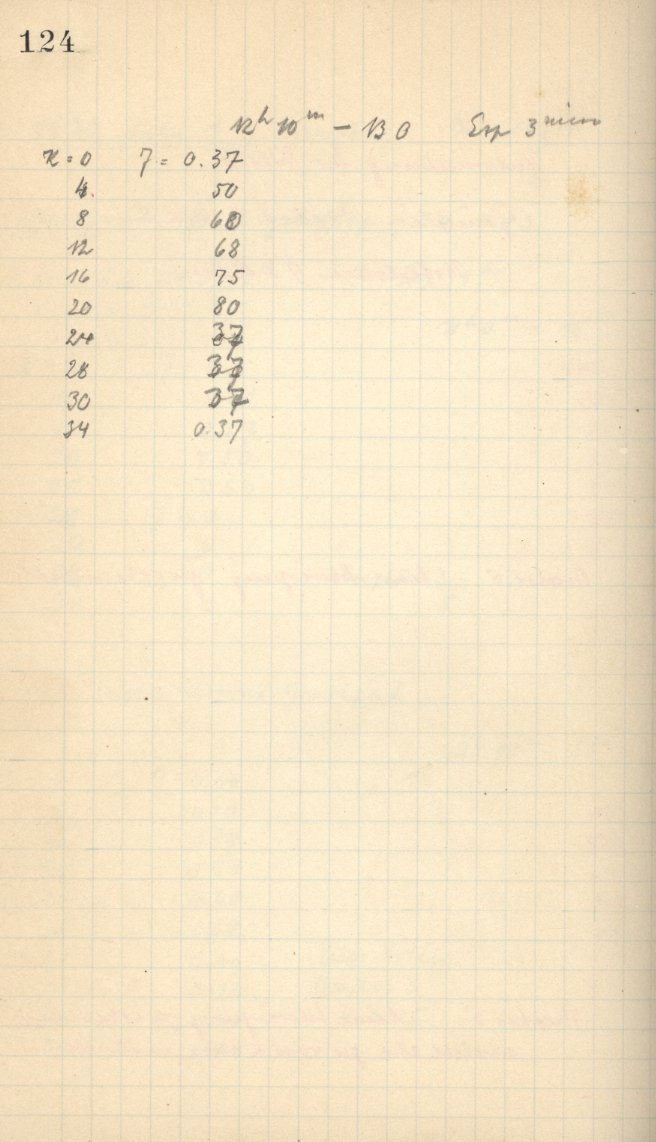 124
12h 10m – 130 Exp 3 min
x = 0 z = 0.37
4. 50
8 60
12 68
16 75
20 80
24 37
28 37
30 37
34 0.37